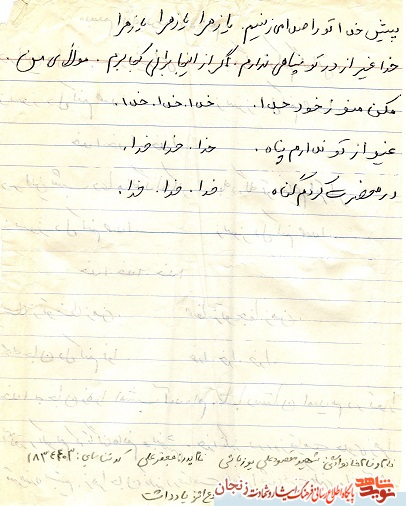 پیش خدا تو را صدا می زنیم. یا زهرا یا زهرا یا زهرا
خدا غیر از در تو پناهی ندارم. اگر از اینجا برانی کجا برم. مولای من.
مکن منو ز خود جدا. خدا. خدا. خدا.
غیر از تو ندارم پناه. خدا. خدا. خدا.
در محضرت کردم گناه خدا. خدا. خدا.
نام و نام خانوادگی: شهید مقصودعلی یوزباشی نام پدر: جعفرعلی کد شناسایی: ۱۸۳۴۴۰۳
یادداشت
نوید شاهد پایگاه اطلاع رسانی فرهنگ ایثار و شهادت زنجان